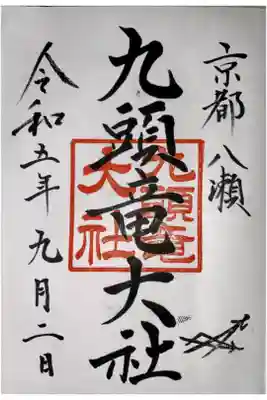 京都 八瀬
九頭竜大社
九頭竜大社
令和五年 九月二日